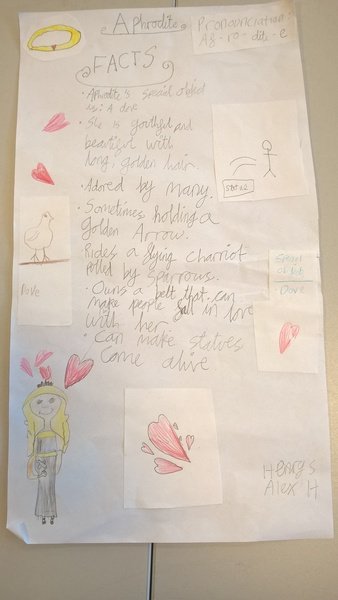 Aphrodite
Pronounciation
Af-ro-dite-e
FACTS
• Aphrodite's speail object
is: A dove
• She is youthful and
beautiful with
long, golden hair.
• Adored by many.
• Sometimes holding a
golden Arrow.
Rides a flying charriot
pulled by sparrows.
• Owns a belt that can
make people fall in love
with her
• Can make statues
Come alive
Dove
Dove
Henry S
Alex H